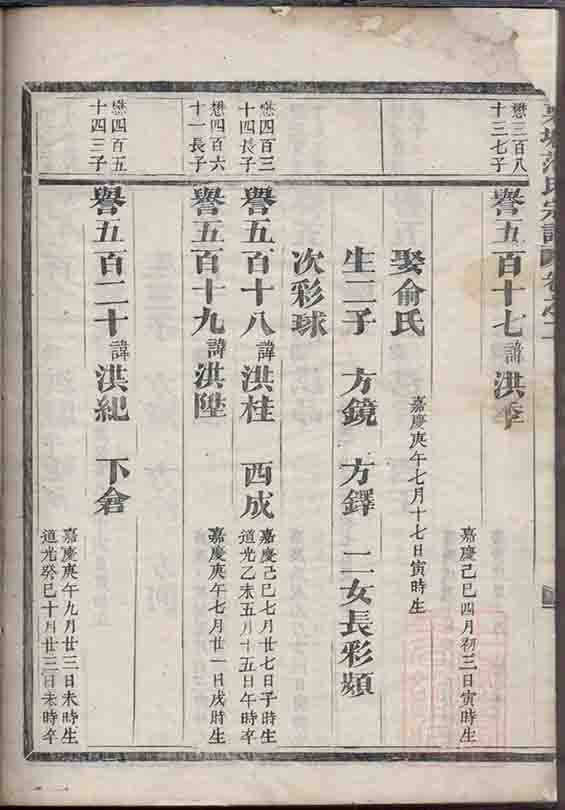 懋三百八
十三七子
譽五百十七 諱 洪
嘉慶己巳四月初三日寅時生
娶俞氏 嘉慶庚午七月十七日寅時生
生二子 方鏡 方鐸 二女長彩蘋
次彩球
懋四百三
十四長子
譽五百十八 諱 洪桂 西成
嘉慶己巳七月廿七日子時生
道光乙未五月十五日午時卒
懋四百六
十一長子
譽五百十九 諱 洪陞
嘉慶庚午七月廿一日戌時生
懋四百五
十四三子
譽五百二十 諱 洪紀 下倉
嘉慶庚午九月廿三日未時生
道光癸巳十月廿三日未時卒